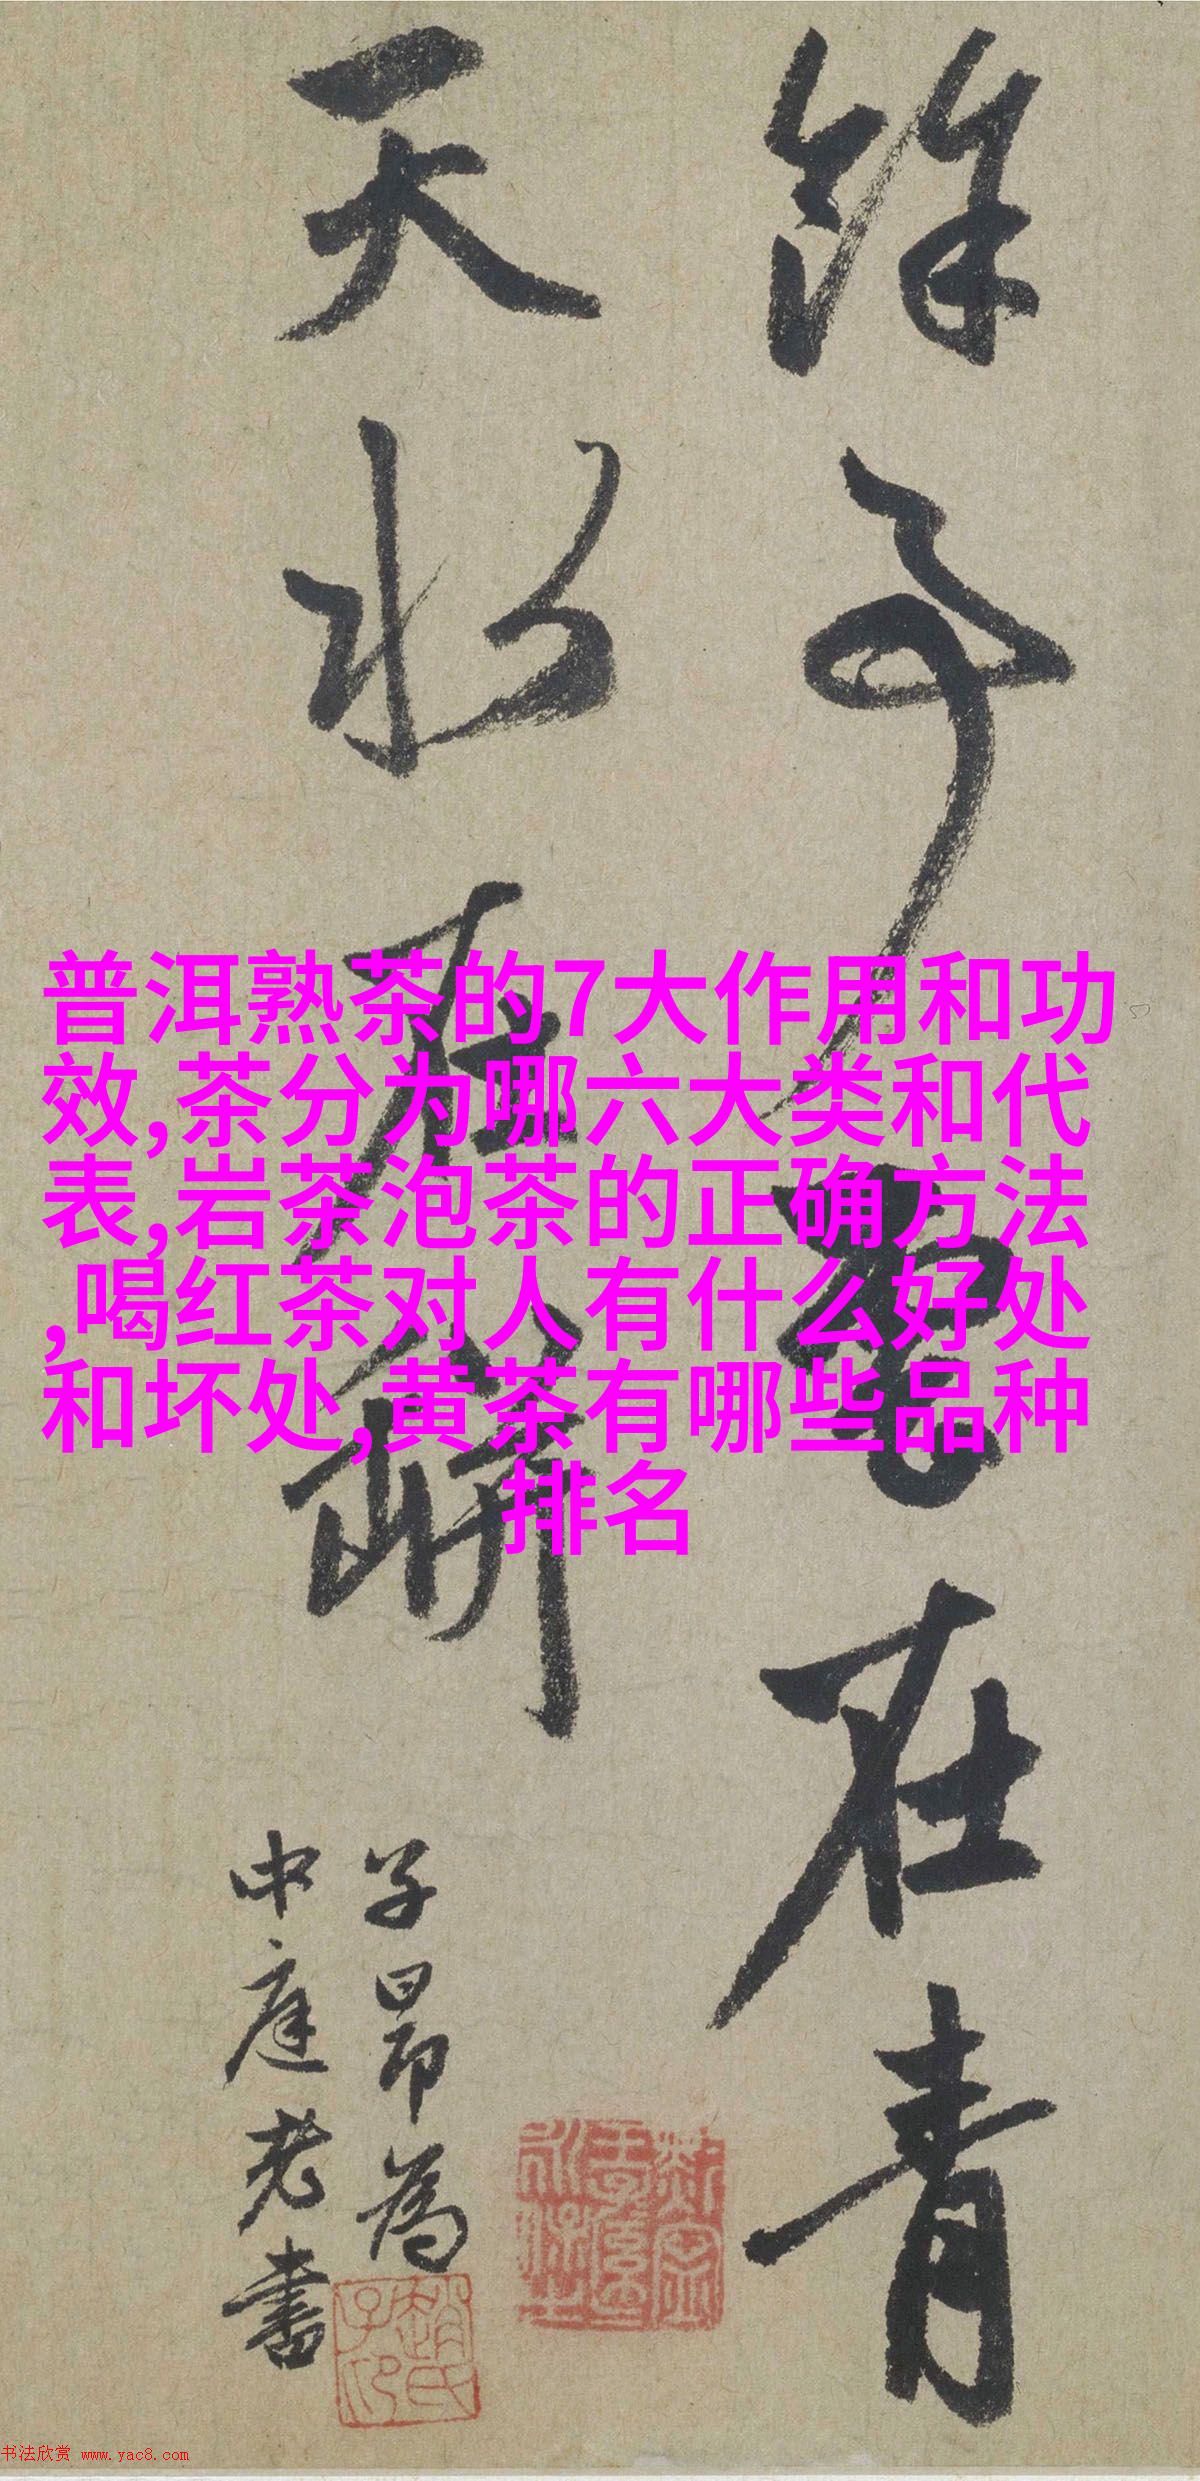 餘雲在青
天水在瓶
子昂為
中庭老書
趙氏子印
普洱熟茶的7大作用和功
效,茶分为哪六大类和代
表,岩茶泡茶的正确方法
,喝红茶对人有什么好处
和坏处,黄茶有哪些品种
排名
书法欣赏 www.yac8.com